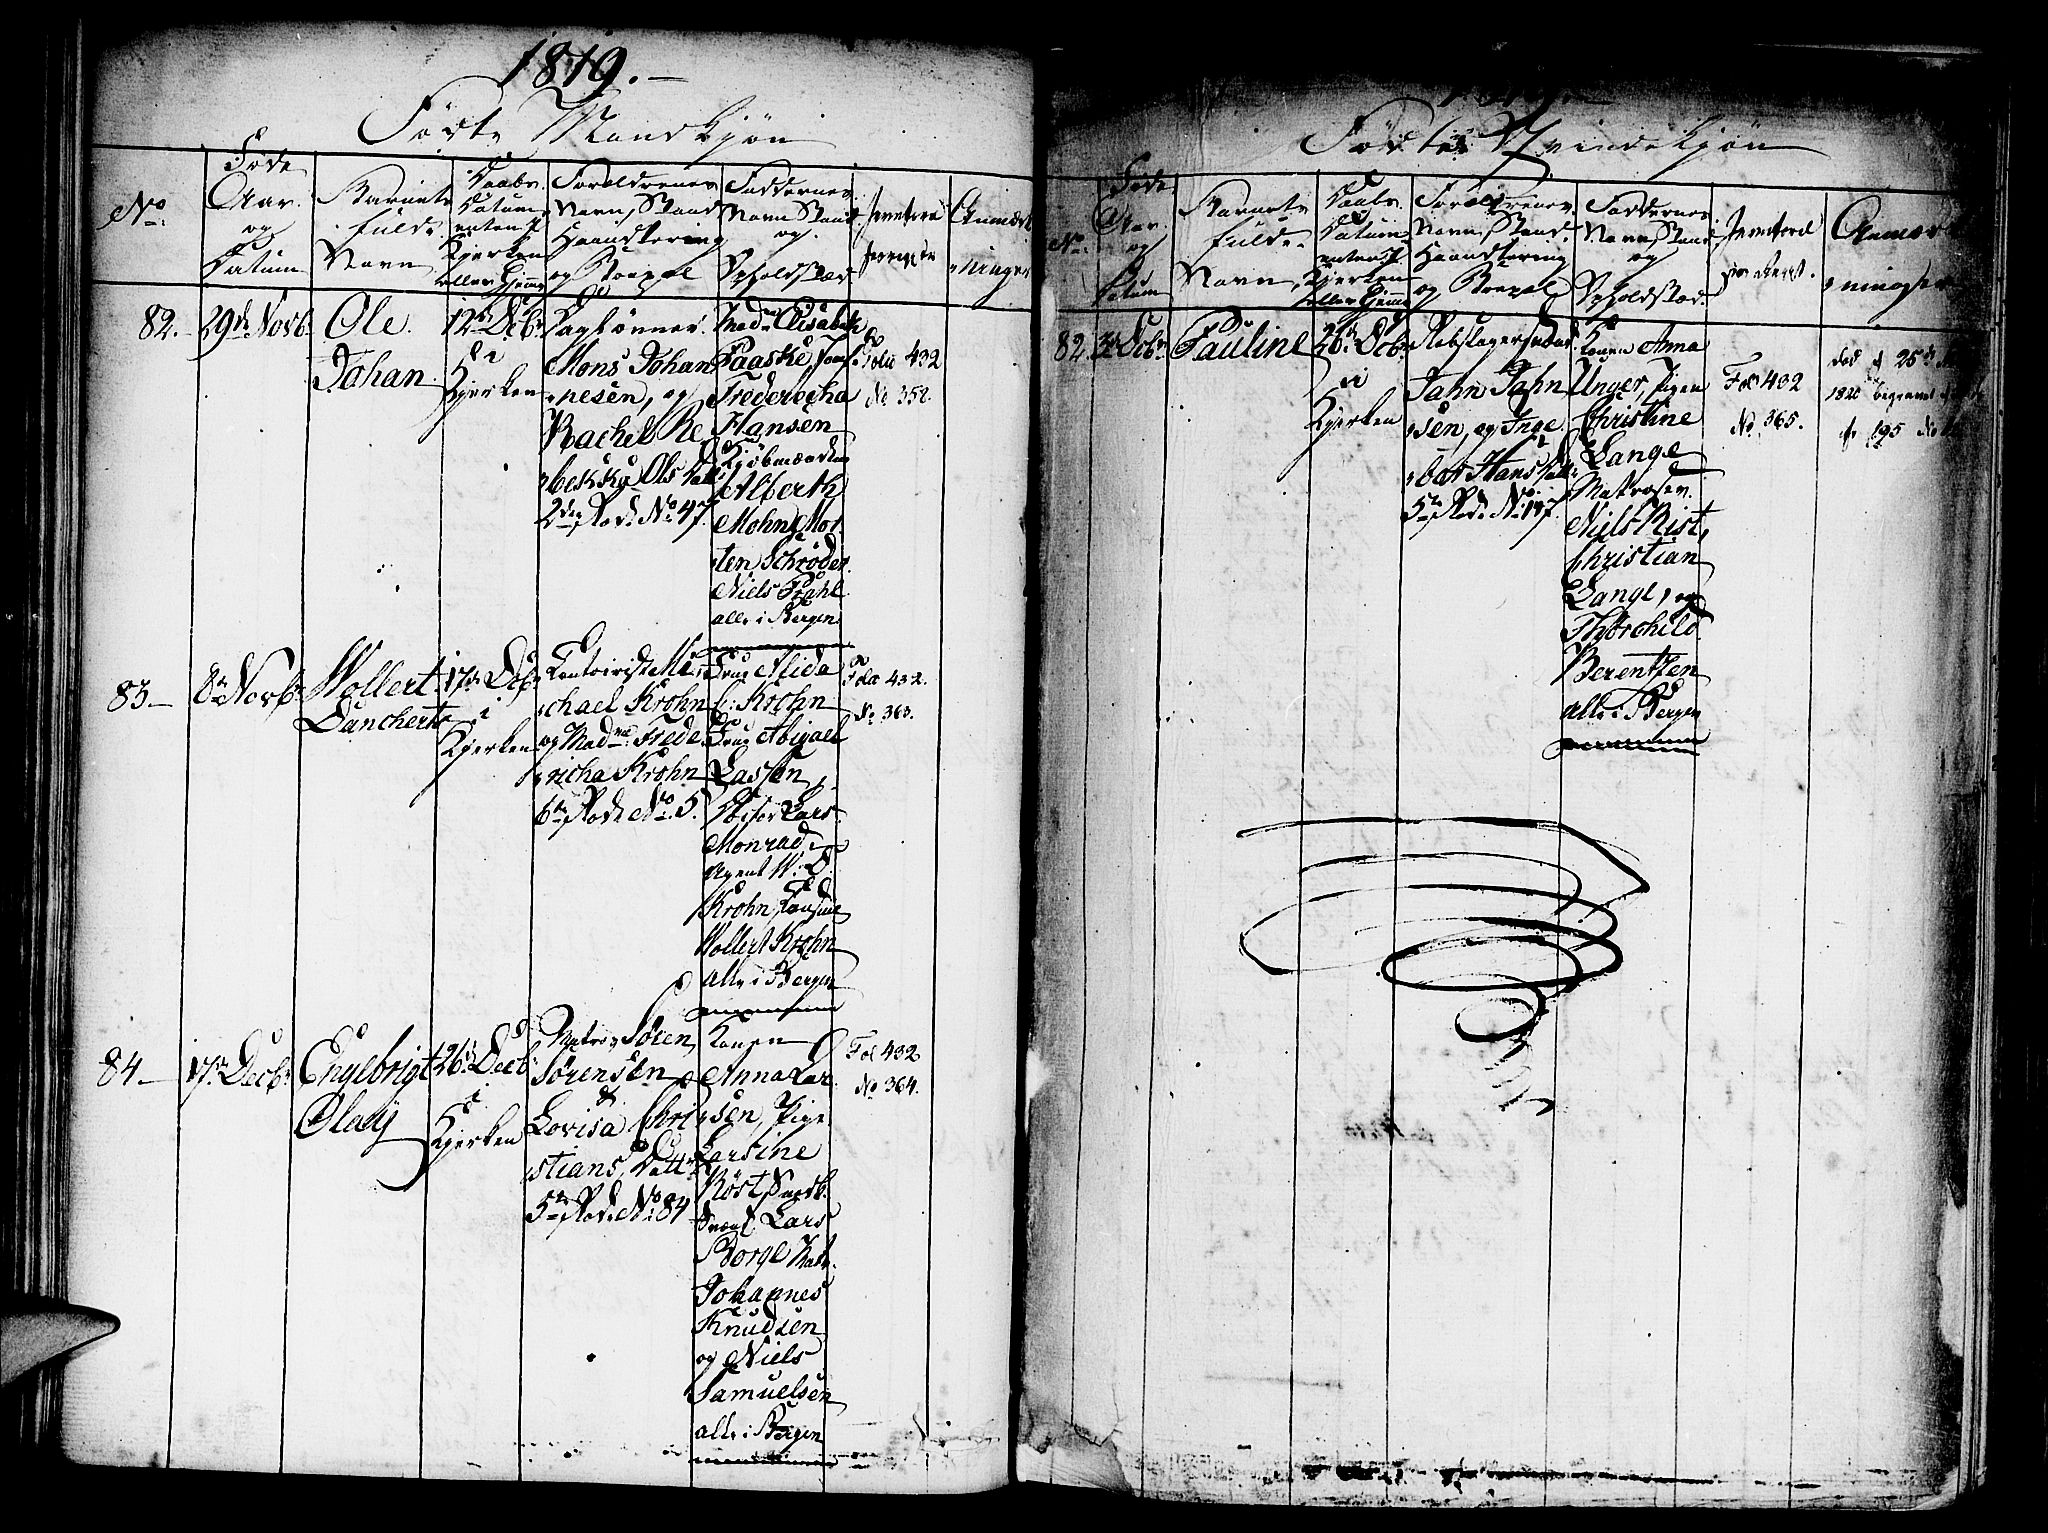 1819.
Födte Mandkjön
No.
Føde
Aar
og
Datum
Barnets
fulde
Navn
Daabs
Datum
enten i
Kjerken
eller Hjemme
Forældrenes
Navn, Stand
Haandtering
og Boepæl
Faddernes
Navn Stand
og
Opholdsted
82. 29de Novb.
Ole
Johan
12te Decbr.
i
Kjerken
Daglønner
Mons Johan-
nesen, og
Rachel Re-
bekka Ols Datt.
2den Rode No 47.
Madme Elisabeth
Paaske, Jomf.
Frederecka
Hansen
Kjøbmændene
Alberth
Mohn, Mor-
ten Schrøder
Niels Prahl
alle i Bergen
Fol. 432
No 358.
83 8de Novbr.
Wollert
Danchertz
17de Decbr.
i
Kjerken
Contoirist Mi-
chael Krohn
og Madme Frede-
richa Krohn
6te Rode No. 5.
Frue Alida
C: Krohn
Frue Abigael
Lassen,
Lars
Monrad
Agent W. D.
Krohn,
Wollert Krohn
alle i Bergen
Fol. 432.
No 363.
84 17de Decbr.
Engelbrigt
Olay
26de Decbr.
i
Kjerken
Matros Sören
Sörensen
&
Lovisa Chri-
stians Datter
5te Rode No 84
Konen
Anna Lar-
sen, Pige
Larsine
Röst,
Lars
Borge Matr.
Johannes
Knudsen
og Niels
Samuelsen
alle i Bergen
Fol 432
No 364.
1819.
Födte Qvindekjön
No.
Føde
Aar
og
Datum
Barnets
fulde
Navn
Daabs
Datum
enten i
Kjerken
eller Hjemme
Forældrenes
Navn, Stand
Haandtering
og Boepæl
Faddernes
Navn, Stand
og
Opholdsted
82. 3de Decbr.
Pauline
26de Decbr.
i
Kjerken
Rebslagersvend
Jahn Jahn-
sen, og Inge-
bor Hans Datt.
5te Rode No 197.
Konen Anna
Unger, Pigen
Christine
Lange
Matroser
Niels Rist,
Christian
Lange, og
Thorchild
Berentzen
alle i Bergen
Fol 432
No. 365.
død d 25de
1820 begravet
195 No